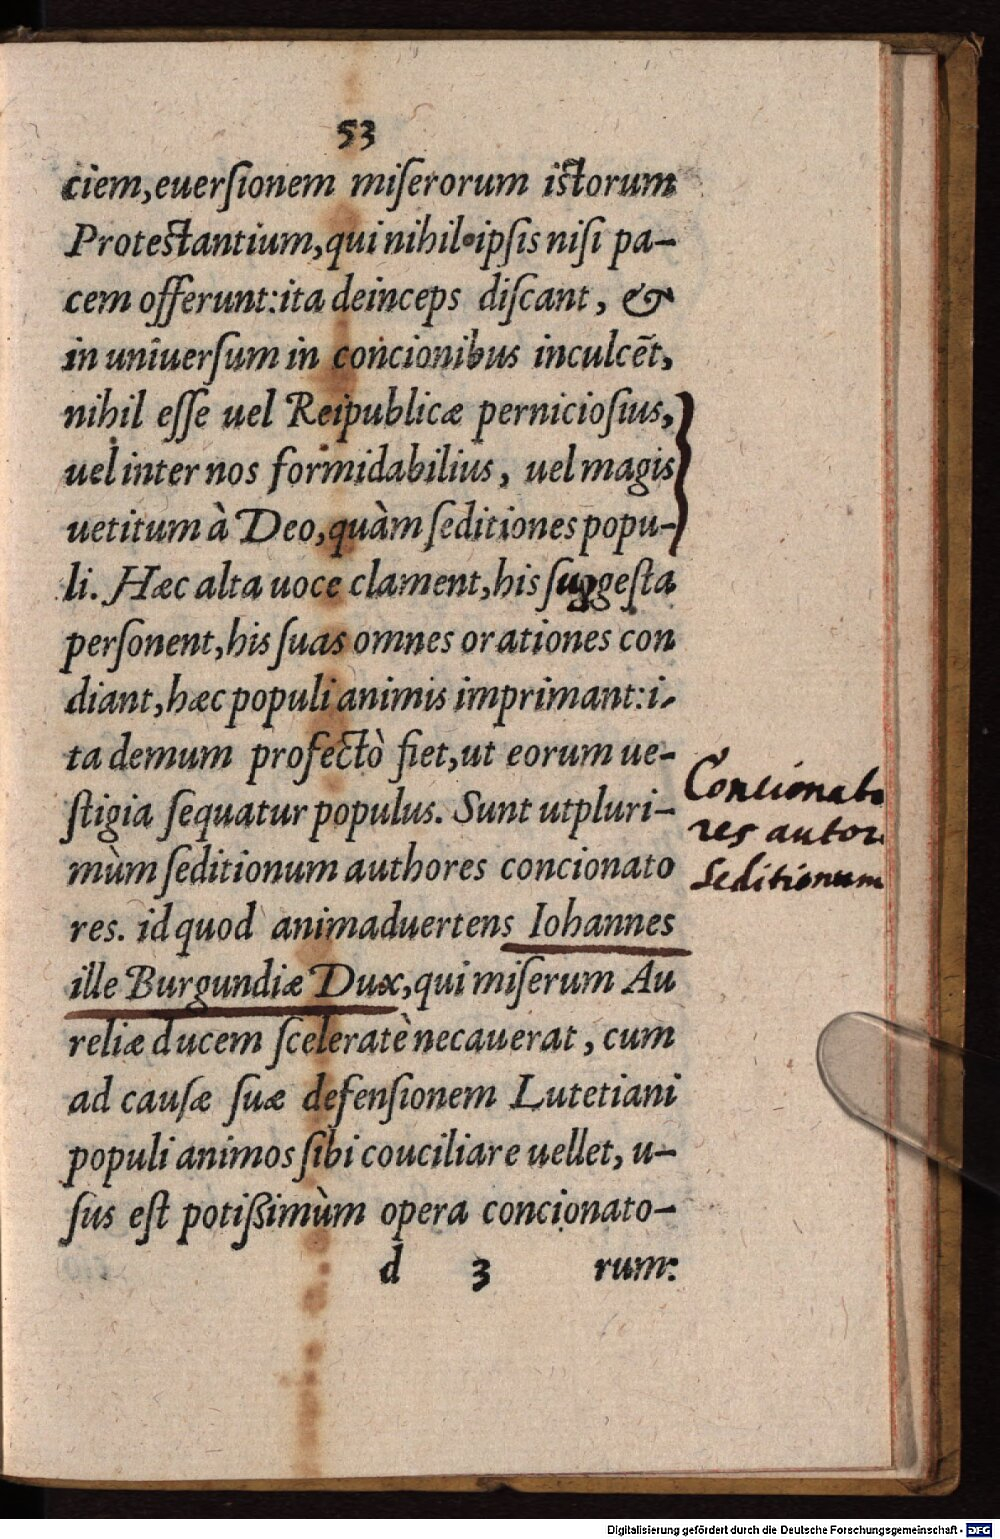 53
ciem,euerſionem miſerorum iſtorum
Proteſtantium,qui nihil ipſis niſi pa-
cem offerunt:ita deinceps diſcant, &
in uniuerſum in concionibus inculcēt,
nihil eſſe uel Reipublicæ pernicioſius,
uel inter nos formidabilius, uel magis
uetitum à Deo,quàm ſeditiones popu-
li. Hæc alta uoce clament,his ſuggeſta
perſonent,his ſuas omnes orationes con
diant,hæc populi animis imprimant:i-
ta demum profectò fiet,ut eorum ue-
ſtigia ſequatur populus. Sunt utpluri-
mùm ſeditionum authores concionato
res. id quod animaduertens Iohannes
ille Burgundiæ Dux,qui miſerum Au
reliæ ducem ſceleratè necauerat, cum
ad cauſæ ſuæ defenſionem Lutetiani
populi animos ſibi couciliare uellet, u-
ſus eſt potiſſimùm opera concionato-
d 3 rum:
Concionato
res autor
Seditionum
Digitalisierung gefördert durch die Deutsche Forschungsgemeinschaft - DFG